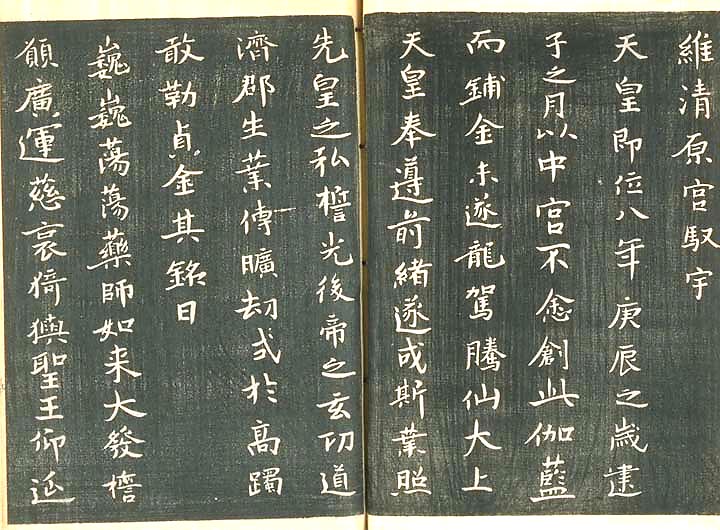 維清原宮馭宇
天皇即位八年庚辰之歳建
子之月以中宮不悆創此伽藍
而鋪金未遂龍駕騰仙大上
天皇奉遵前緒遂成斯業照
先皇之弘誓光後帝之玄功道
濟郡生業傳曠劫式於高躅
敢勒貞金其銘曰
巍巍蕩蕩藥師如来大發誓
願廣運慈哀猗𤟱聖王仰延